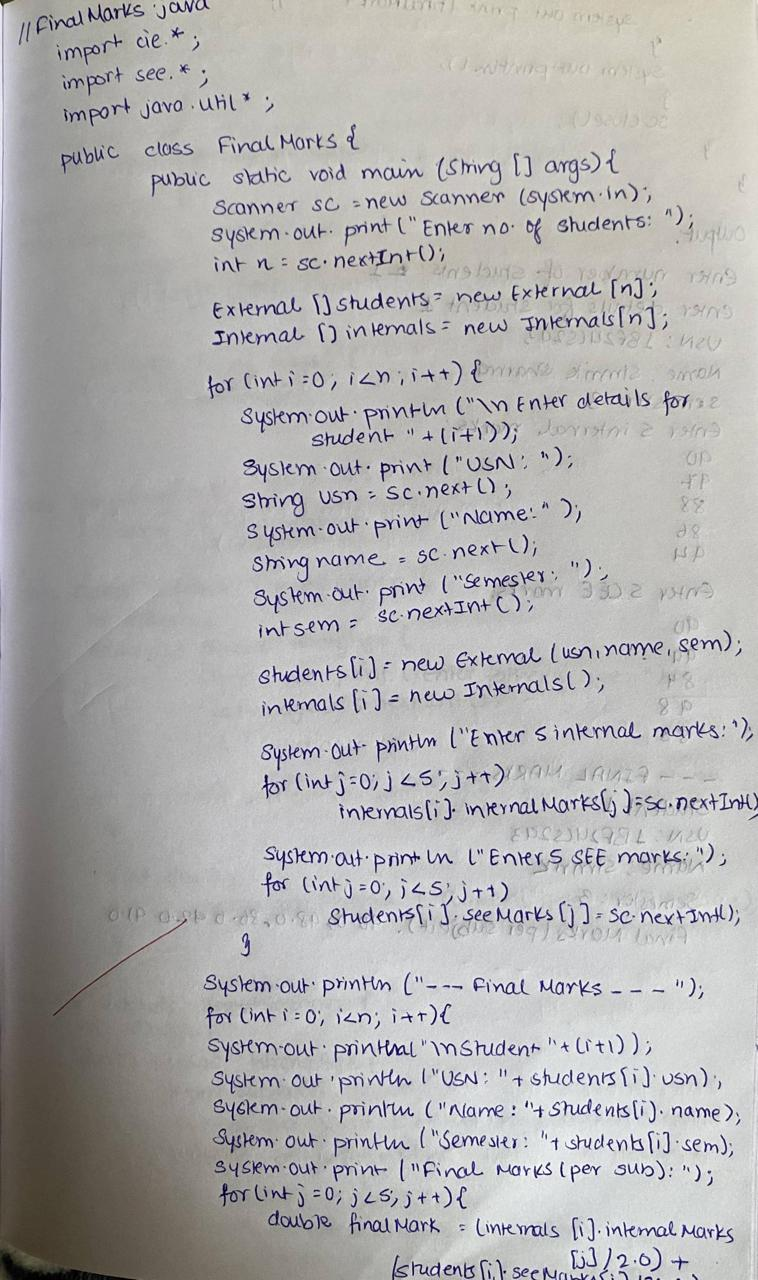 //FinalMarks.java
import cie.*;
import see.*;
import java.util*;
public class FinalMarks {
public static void main (String [] args) {
Scanner sc = new Scanner (System.in);
System.out.print ("Enter no. of students: ");
int n = sc.nextInt();
External [] students = new External [n];
Internal [] internals = new Internals[n];
for (int i=0; i<n; i++) {
System.out.println ("\n Enter details for
student " + (i+1));
System.out.print ("USN: ");
String usn = sc.next();
System.out.print ("Name: " );
String name = sc.next();
System.out.print ("Semester: ");
int sem = sc.nextInt();
students[i] = new External (usn, name, sem);
internals [i] = new Internals();
System.out println ("Enter 5 internal marks: ");
for (int j=0; j<5; j++)
internals[i].internalMarks[j]=sc.nextInt()
System.out.println ("Enter 5 SEE marks: ");
for (int j=0; j<5; j++)
Students[i].seeMarks [j] = sc.nextInt();
}
System.out.println ("--- Final Marks ---");
for (int i=0; i<n; i++){
System.out.println("\nStudent "+(i+1));
System.out.println ("USN: "+ students[i].usn);
System.out.println ("Name: "+ Students[i].name);
System.out.println ("Semester: "+ students[i].sem);
System.out.print ("Final Marks (per sub): ");
for (int j=0; j<5; j++){
double finalMark = (internals [i].internal Marks
[j]/2.0) +
(students[i].seeMarks